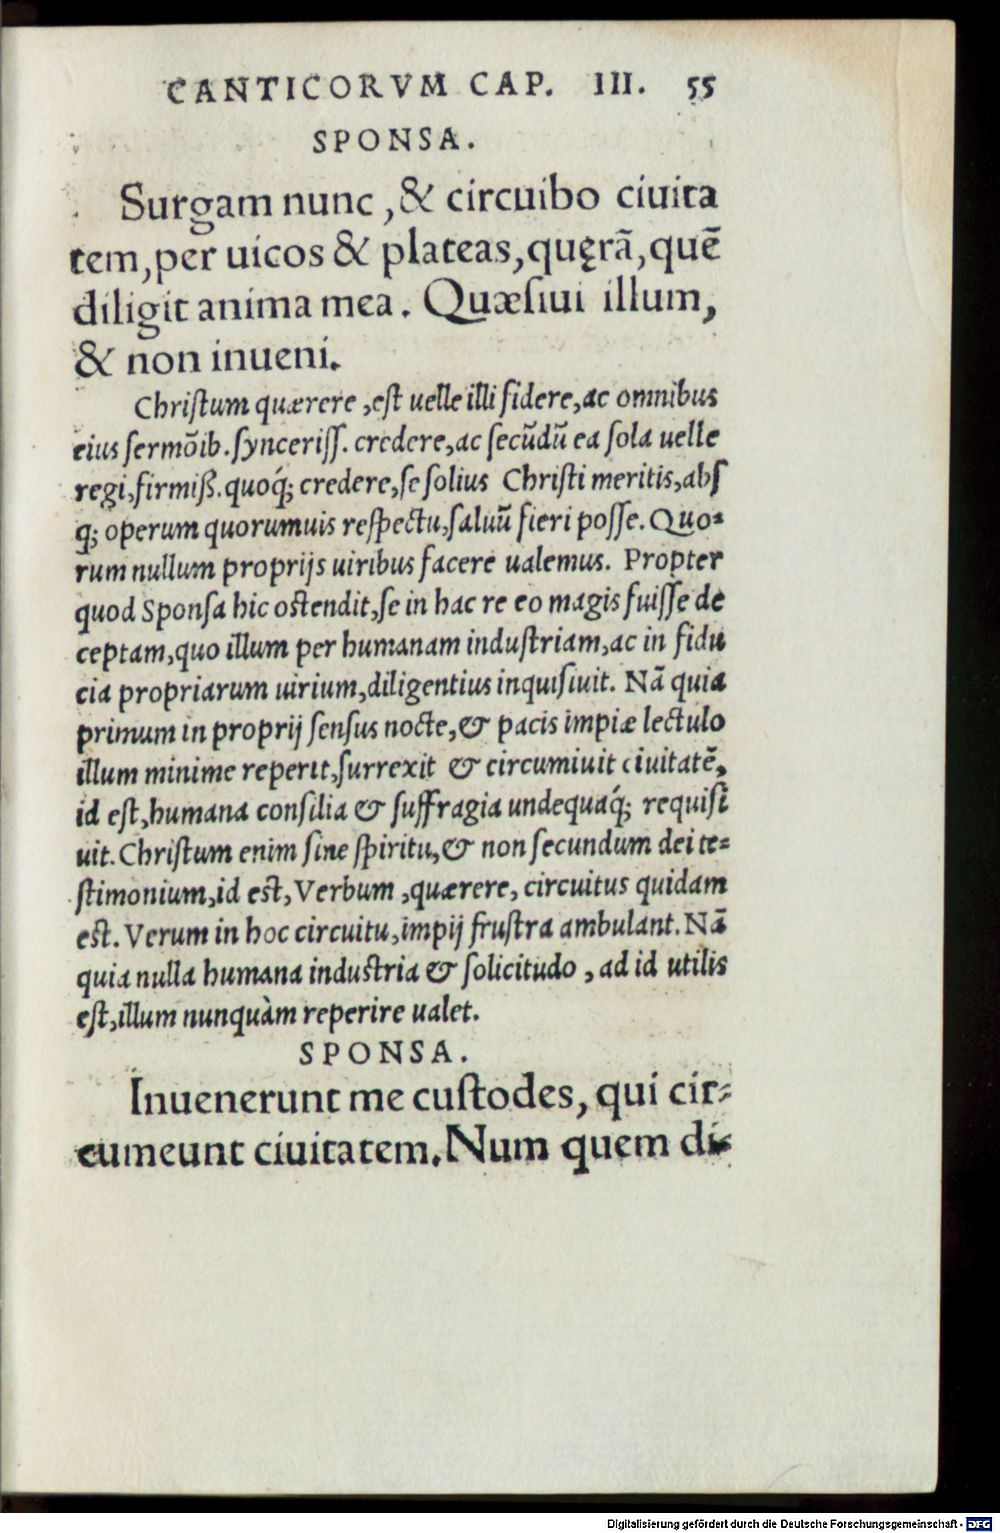 CANTICORVM CAP. III. 55
SPONSA.
Surgam nunc, & circuibo ciuita
tem, per uicos & plateas, quęrã, quẽ
diligit anima mea. Quæſiui illum,
& non inueni.
Chriſtum quærere, eſt uelle illi fidere, ac omnibus
eius ſermõib. ſynceriſſ. credere, ac ſecũdũ ea ſola uelle
regi, firmiß. quoq́; credere, ſe ſolius Chriſti meritis, abſ
q; operum quorumuis reſpectu, ſaluũ fieri poſſe. Quo-
rum nullum proprijs uiribus facere ualemus. Propter
quod Sponſa hic oſtendit, ſe in hac re eo magis fuiſſe de
ceptam, quo illum per humanam induſtriam, ac in fidu
cia propriarum uirium, diligentius inquiſiuit. Nã quia
primum in proprij ſenſus nocte, & pacis impiæ lectulo
illum minime reperit, ſurrexit & circumiuit ciuitatẽ,
id eſt, humana conſilia & ſuffragia undequaq́; requiſi
uit. Chriſtum enim ſine ſpiritu, & non ſecundum dei te=
ſtimonium, id eſt, Verbum, quærere, circuitus quidam
eſt. Verum in hoc circuitu, impij fruſtra ambulant. Nã
quia nulla humana induſtria & ſolicitudo, ad id utilis
eſt, illum nunquàm reperire ualet.
SPONSA.
Inuenerunt me cuſtodes, qui cir-
cumeunt ciuitatem. Num quem di-
Digitalisierung gefördert durch die Deutsche Forschungsgemeinschaft - DFG